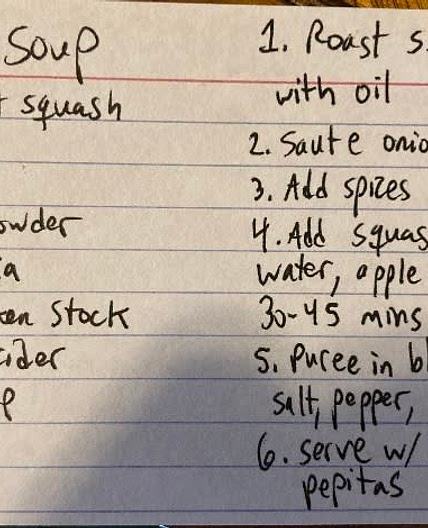 Soup
squash
owder
a
en Stock
ider
p
1. Roast s
with oil
2. Saute onio
3. Add spices
4. Add squas
water, apple
30-45 mins
5. Puree in bl
salt, pepper,
6. serve w/
pepitas